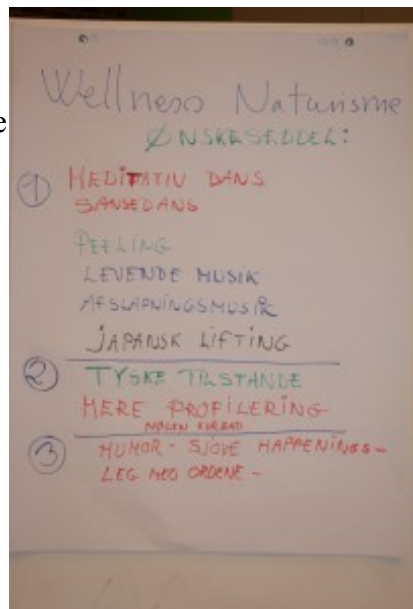 e
Wellness Naturisme
ØNSKESEDDEL:
1 MEDITATIV DANS
SANSEDANS
PEELING
LEVENDE MUSIK
AFSLAPNINGSMUSIK
JAPANSK LIFTING
2 TYSKE TILSTANDE
MERE PROFILERING
3 HUMOR - SJOVE HAPPENINGS -
LEG MED ORDENE -